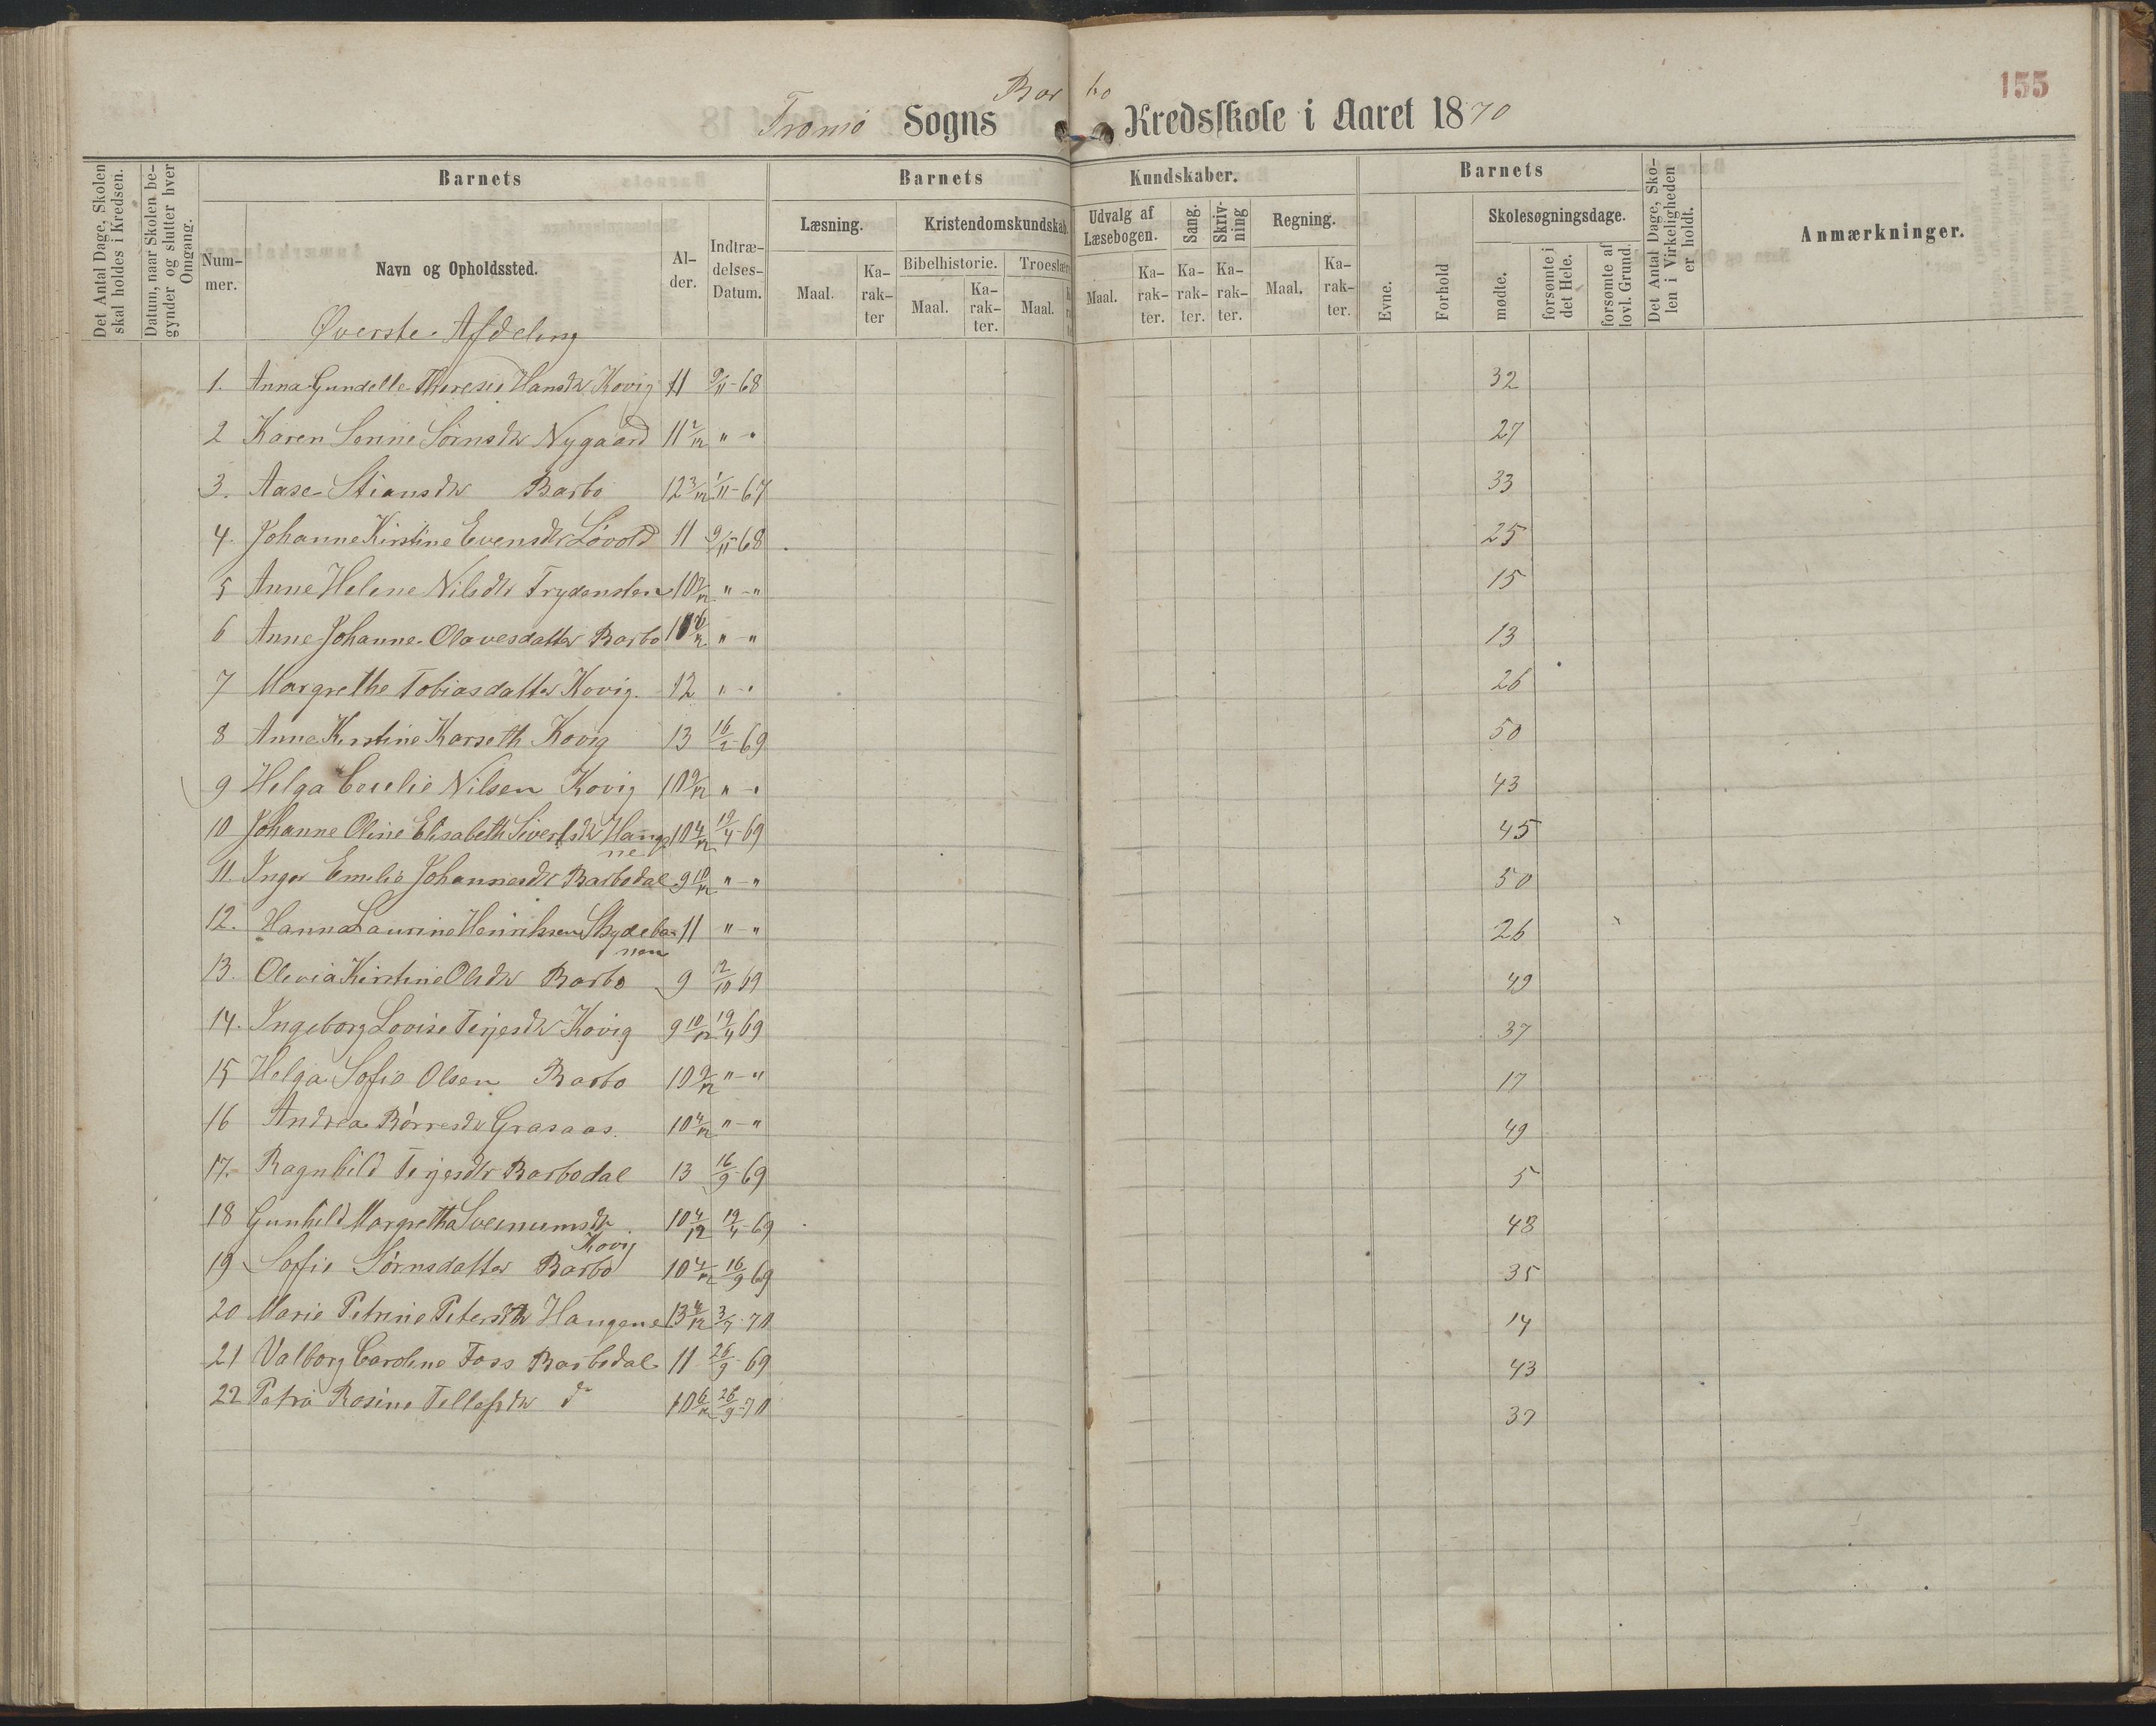 155
Barbo
Tromö Sogns Kredsskole i Aaret 1870
Det Antal Dage, Skolen skal holdes i Kredsen.
Datum, naar Skolen begynder og slutter hver Omgang.
Barnets
Barnets Kundskaber.
Barnets
Det Antal Dage, Skolen i Virkeligheden er holdt.
Anmærkninger.
Nummer.
Navn og Opholdssted.
Alder.
Indtrædelses-Datum.
Læsning.
Kristendomskundskab.
Udvalg af Læsebogen.
Sang.
Skrivning
Regning.
Evne.
Forhold
Skolesøgningsdage.
Bibelhistorie.
Troeslære
Maal.
Karakter
Maal.
Karakter.
Maal.
Maal.
Karakter.
Karakter.
Karakter.
Maal.
Karakter.
mødte.
forsømte i det Hele.
forsømte af lovl. Grund.
Øverste Afdeling
1. Anna Gundelle Therese Hansdtr Kovig 11 9/11-68 32
2 Karen Senne Sörnsdtr Nygaard 11 2/12 " - " 27
3. Aase Stiansdtr Barbo 12 3/12 1/11-67 33
4. Johanne Kirstine Evensdtr Lövold 11 9/11-68 25
5 Anne Helene Nilsdtr Trydensten 10 9/12 " - " 15
6 Anne Johanne Olavesdatter Barbo " - " 13
7 Margrethe Tobiasdatter Kovig. 12 " - " 26
8 Anna Kirstine Karseth Kovig 13 16/2-69 50
9 Helga Cecelie Nilsen Kovig 10 9/12 " - " 43
10 Johanne Oline Elisabeth Sivertsdtr Haugene 10 4/12 19/4-69 45
11. Inger Emelie Johannesdtr Barbodal 9 10/12 " - " 50
12. Hanna Laurine Henriksen Skydebanen 11 " - " 26
13. Olevia Kirstine Olsdtr Barbo 9 12/10 69 49
14. Ingeborg Lovise Terjesdtr Kovig 9 10/12 19/4 69 37
15 Helga Sofie Olsen Barbo 10 9/12 " - " 17
16 Andrea Börresdtr Grasaas. 10 4/12 " - " 49
17. Ragnhild Terjesdtr Barbodal 13 16/9-69 5
18 Gunhild Margretha Sveinumsdtr Kovig 10 4/12 19/4-69 48
19 Soffie Sörnsdatter Barbo 10 4/12 16/9 69 35
20 Marie Petrine Petersdtr Haugene 13 4/12 3/7-70 14
21 Valborg Caroline Foss Barbodal 11 26/9-69 43
22 Petra Rosine Tellefsdtr do 10 6/12 26/9-70 37